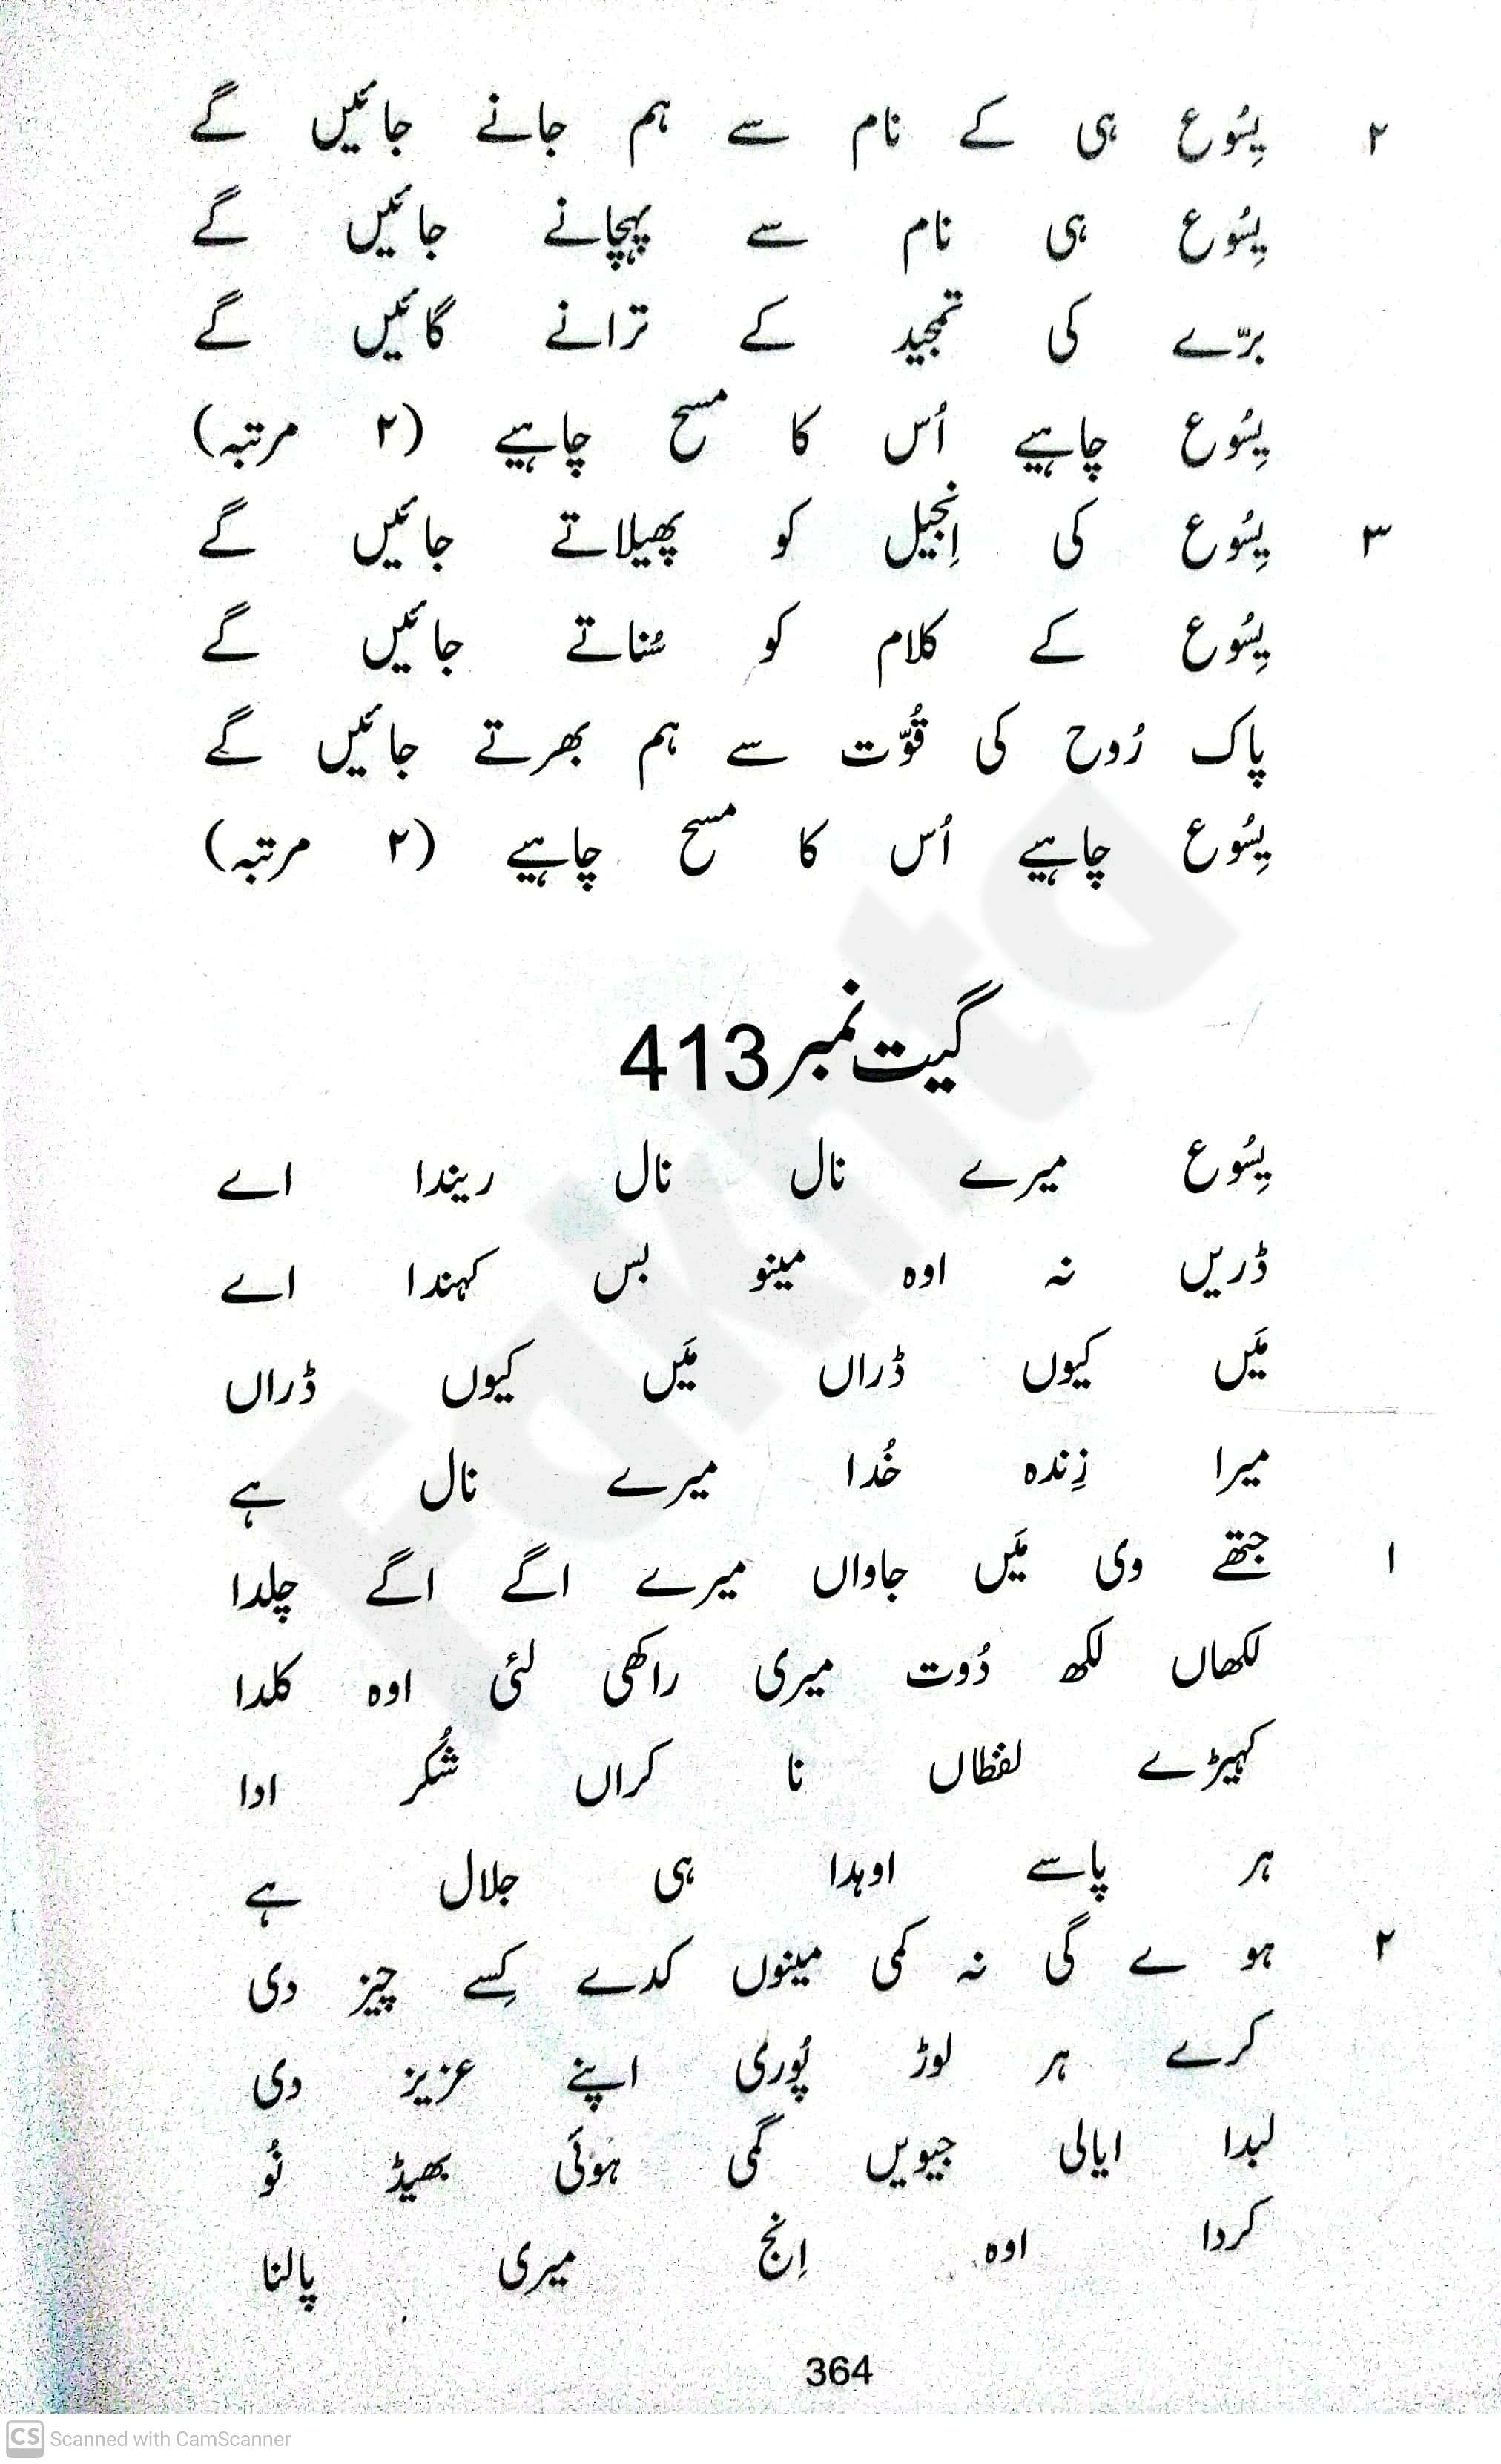 ۲ یِسُوع ہی کے نام سے ہم جانے جائیں گے
یِسُوع ہی نام سے پہچانے جائیں گے
برّے کی تمجید کے ترانے گائیں گے
یِسُوع چاہیے اُس کا مسح چاہیے (۲ مرتبہ)
۳ یِسُوع کی اِنجیل کو پھیلاتے جائیں گے
یِسُوع کے کلام کو سُناتے جائیں گے
پاک رُوح کی قُوّت سے ہم بھرتے جائیں گے
یِسُوع چاہیے اُس کا مسح چاہیے (۲ مرتبہ)
گیت نمبر 413
یِسُوع میرے نال نال ریندا اے
ڈریں نہ اوہ مینو بس کہندا اے
مَیں کیوں ڈراں مَیں کیوں ڈراں
میرا زِندہ خُدا میرے نال ہے
۱ جتھے وی مَیں جاواں میرے اگے اگے چلدا
لکھاں لکھ دُوت میری راکھی لئی اوہ کلدا
کہیڑے لفظاں نا کراں شُکر ادا
ہر پاسے اوہدا ہی جلال ہے
۲ ہو ے گی نہ کمی مینوں کدے کِسے چیز دی
کرے ہر لوڑ پُوری اپنے عزیز دی
لبدا ایالی جیویں گمی ہوئَی بھیڈ نُو
کردا اوہ اِنج میری پالنا
364
Fakhta
CS Scanned with CamScanner